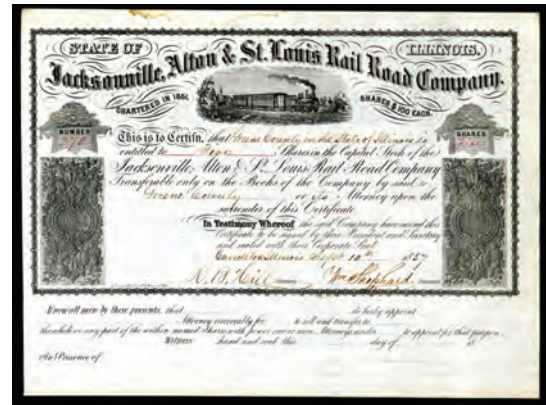 STATE OF ILLINOIS.
Jacksonville, Alton & St. Louis Rail Road Company.
CHARTERED IN 1851. SHARES $100 EACH.
NUMBER SHARES
This is to Certify, that Greene County in the State of Illinois is
entitled to Four Shares in the Capital Stock of the
Jacksonville, Alton & St. Louis Rail-Road Company
Transferable only on the Books of the Company by said
Greene County or its Attorney upon the
surrender of this Certificate
In Testimony Whereof the said Company have caused this
Certificate to be signed by their President and Secretary
and sealed with their Corporate Seal.
Illinois Sept 10th 1857
R. B. Hill Wm Shephard
Know all men by these presents, that do hereby appoint
Attorney irrevocably for to sell and transfer to
the whole or any part of the within named Shares with power one or more Attorneys under to appoint for that purpose
Witness hand and seal this day of 18
In Presence of